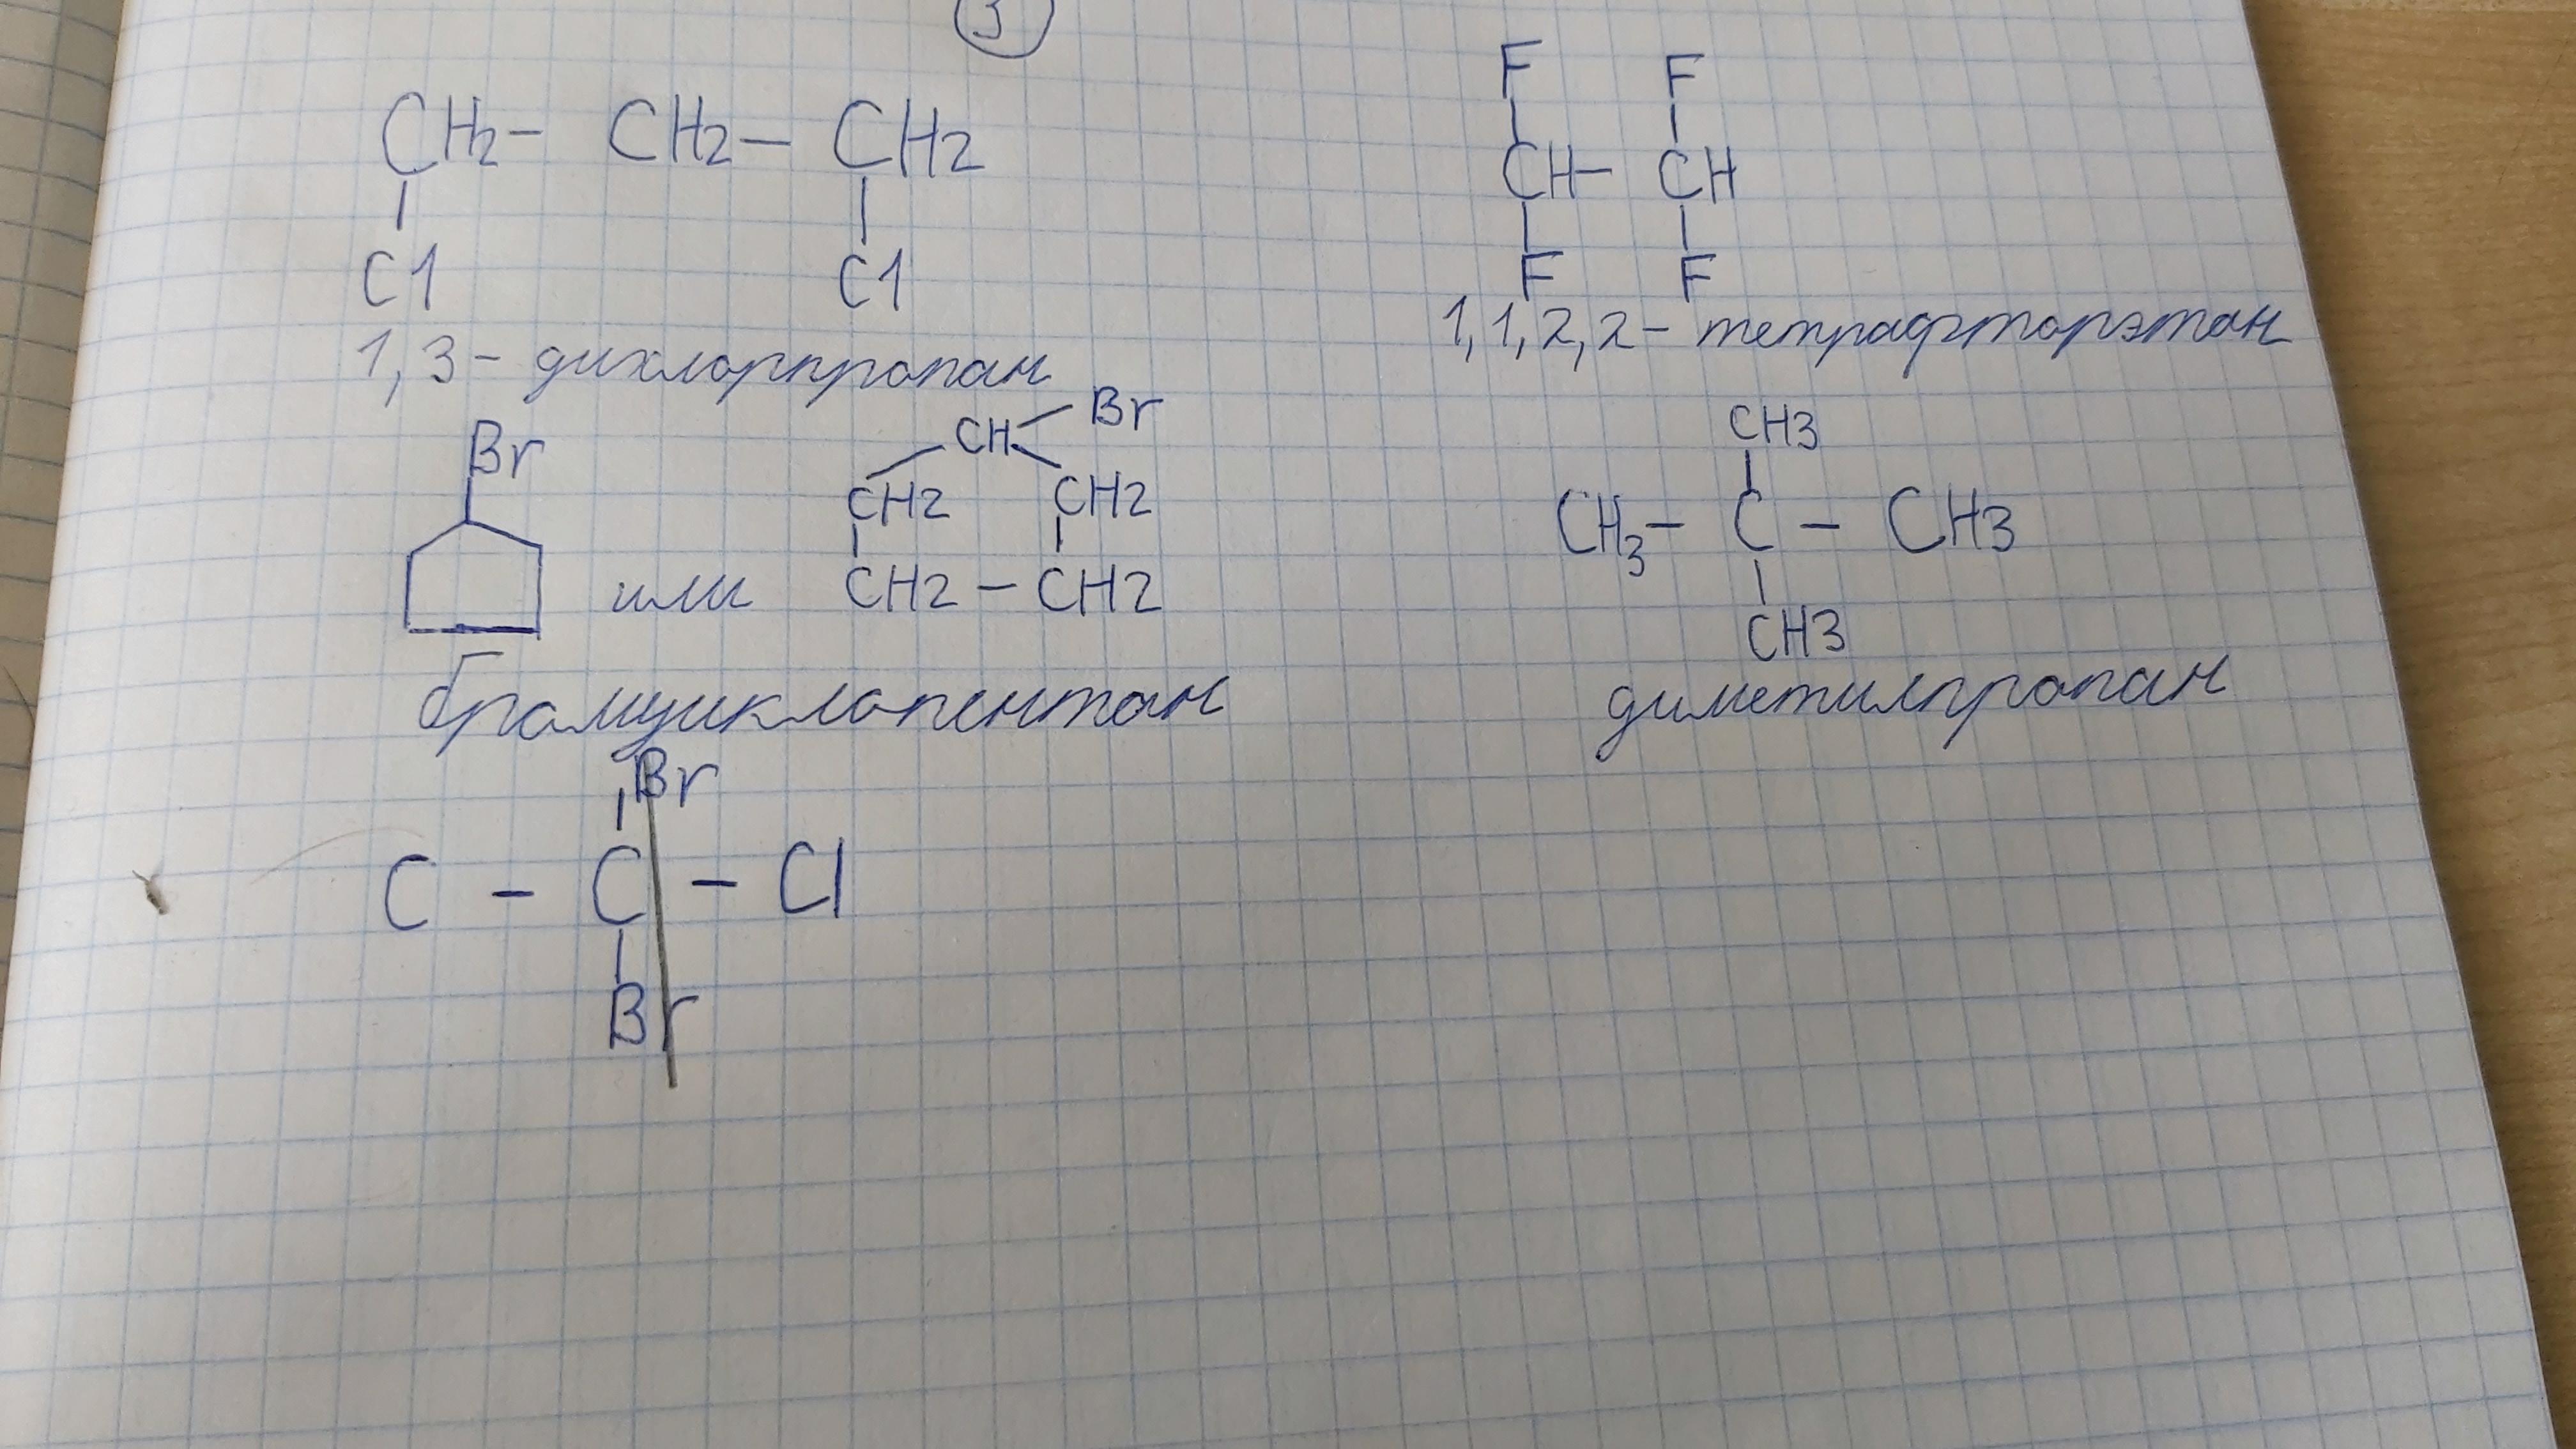 3
F F
CH2 - CH2 - CH2
CH - CH
Cl Cl
F F
1,3 - дихлорпропан
1,1,2,2 - тетрафторэтан
Br
CH - Br
CH3
CH2 CH2
CH3 - C - CH3
или
CH2 - CH2
CH3
бромциклопентан
диметилпропан
Br
C - C - Cl
Br